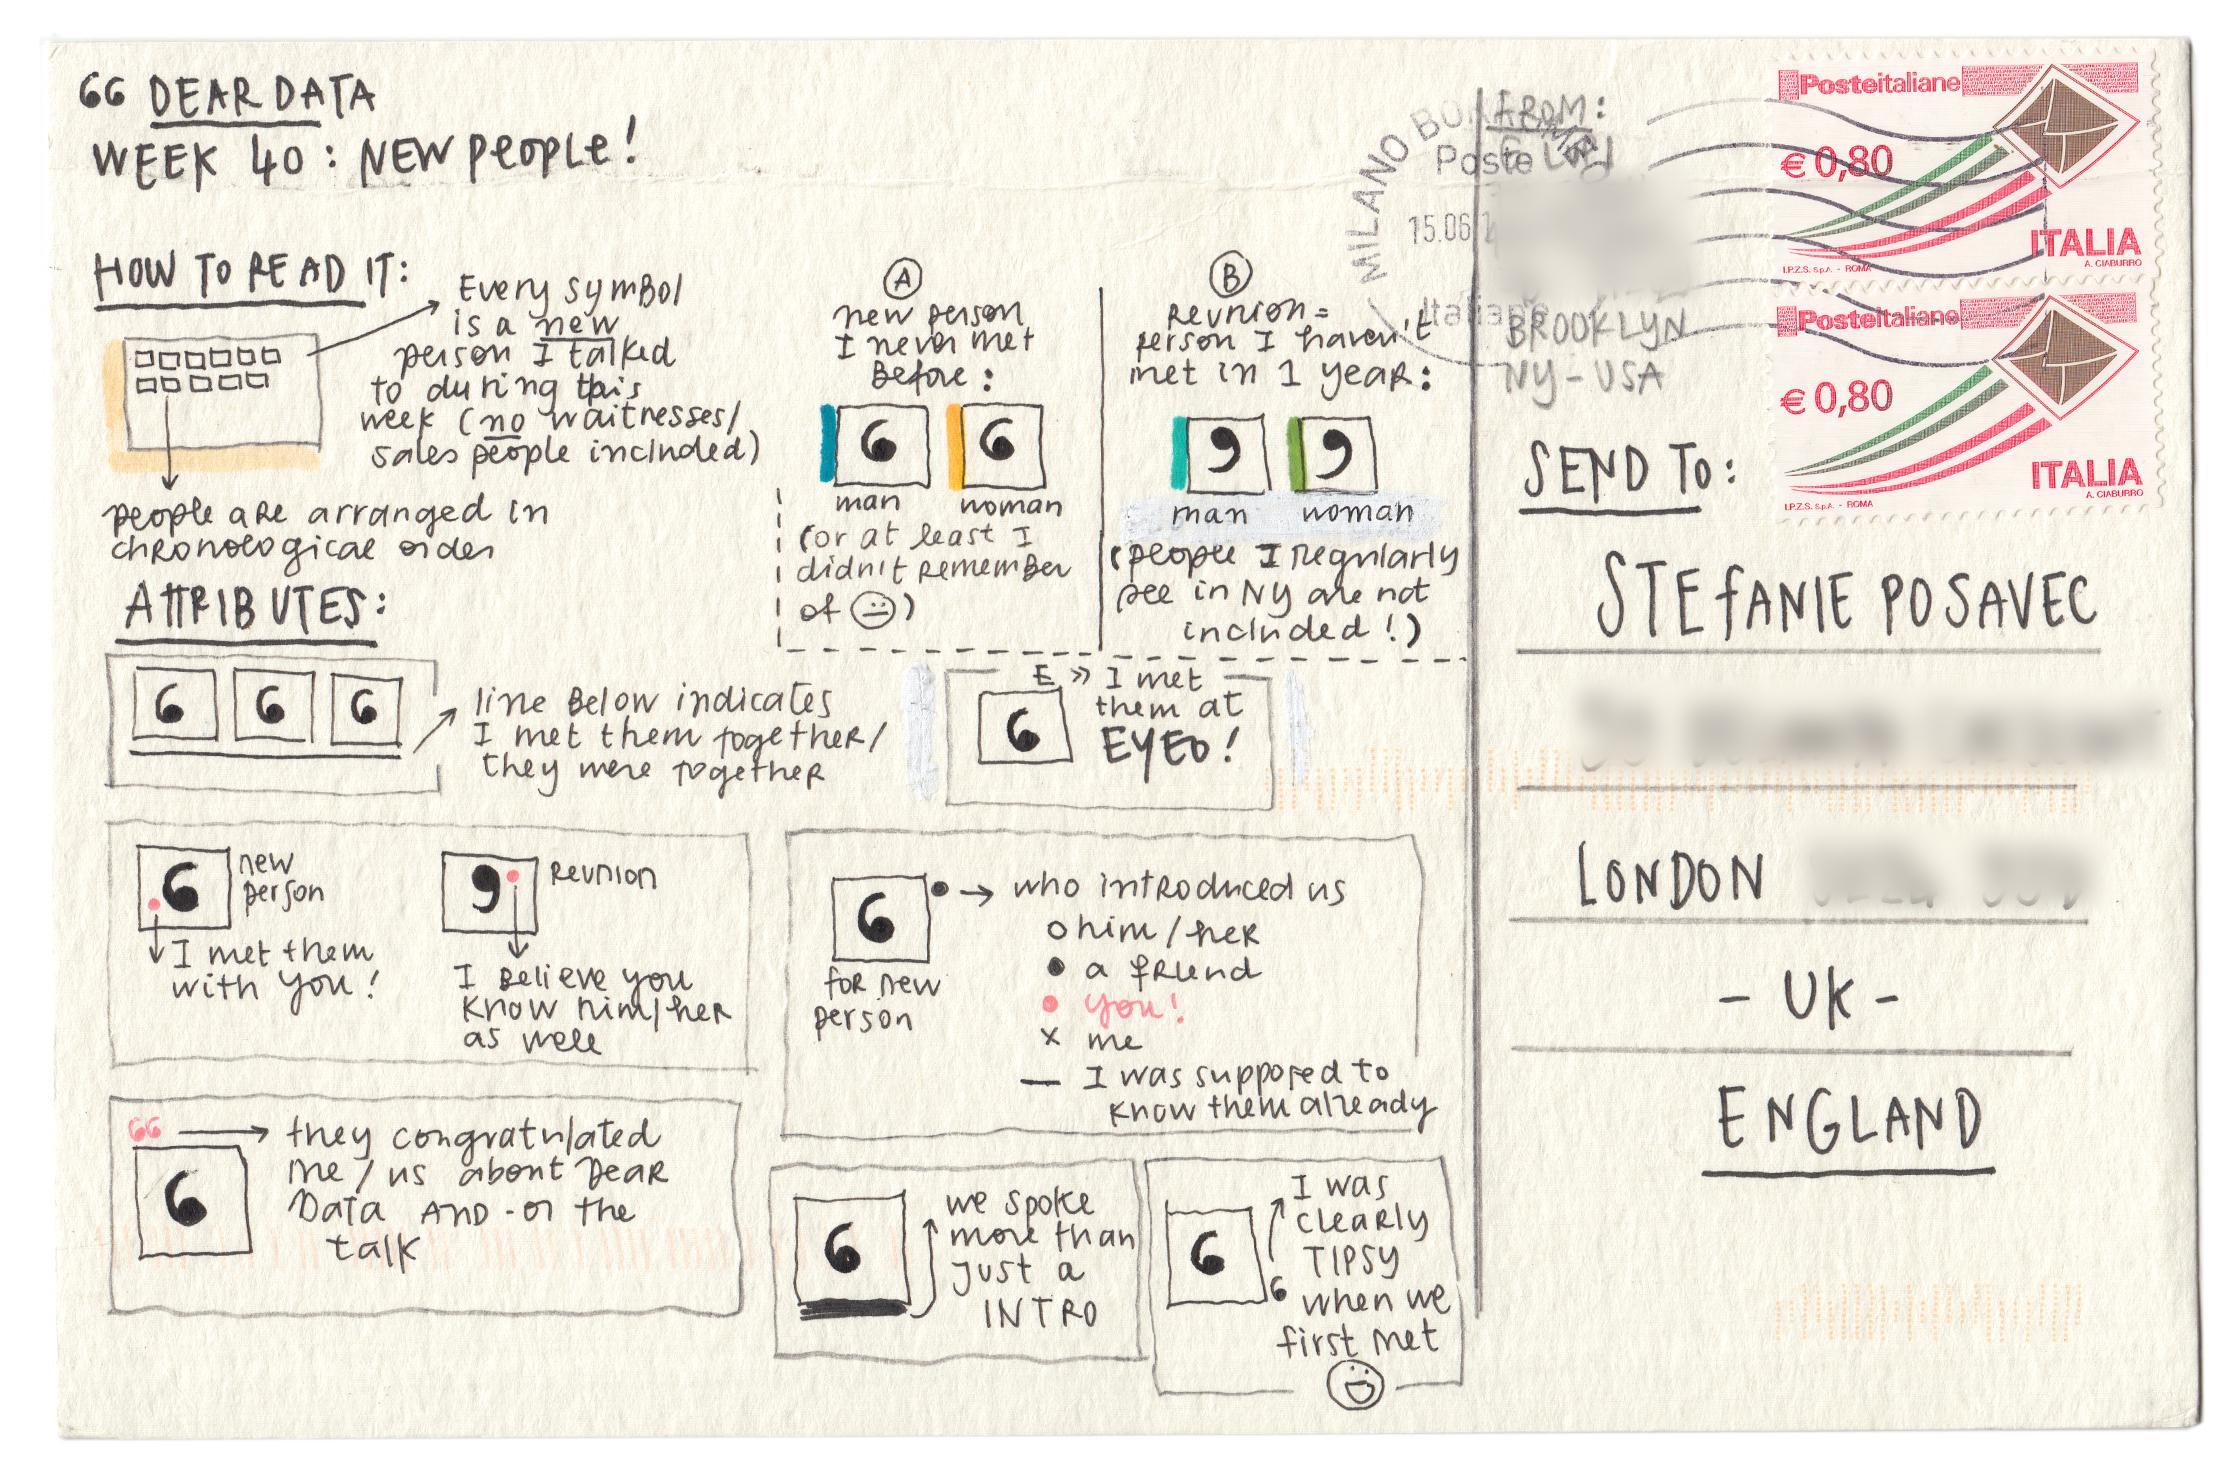 66 DEAR DATA
WEEK 40: NEW PEOPLE!
HOW TO READ IT:
Every symbol
is a new
person I talked
to during this
week (no waitresses/
sales people included)
people are arranged in
chronological order
A
new person
I never met
Before:
6 6
man woman
(or at least I
didn't remember
of)
B
Reunion =
person I haven't
met in 1 year:
9 9
man woman
(people I regularly
see in NY are not
included!)
ATTRIBUTES:
6 6 6
line below indicates
I met them together/
they were together
E >> I met
them at
EYEO!
6
6 new
person
I met them
with you!
9 Reunion
I believe you
know him/her
as well
6
for new
person
who introduced us
him/her
a friend
you!
x me
— I was supposed to
know them already
66
6
they congratulated
me/us about Dear
Data AND-or the
talk
6
we spoke
more than
just a
INTRO
6
6
I was
clearly
TIPSY
when we
first met
FROM:
BROOKLYN
NY-USA
SEND TO:
STEFANIE POSAVEC
LONDON
- UK -
ENGLAND
MILANO
Poste
15.06
Italiane
Posteitaliane
€ 0,80
ITALIA
A. CIABURRO
I.P.Z.S. S.p.A. - ROMA
Posteitaliane
€ 0,80
ITALIA
A. CIABURRO
I.P.Z.S. S.p.A. - ROMA